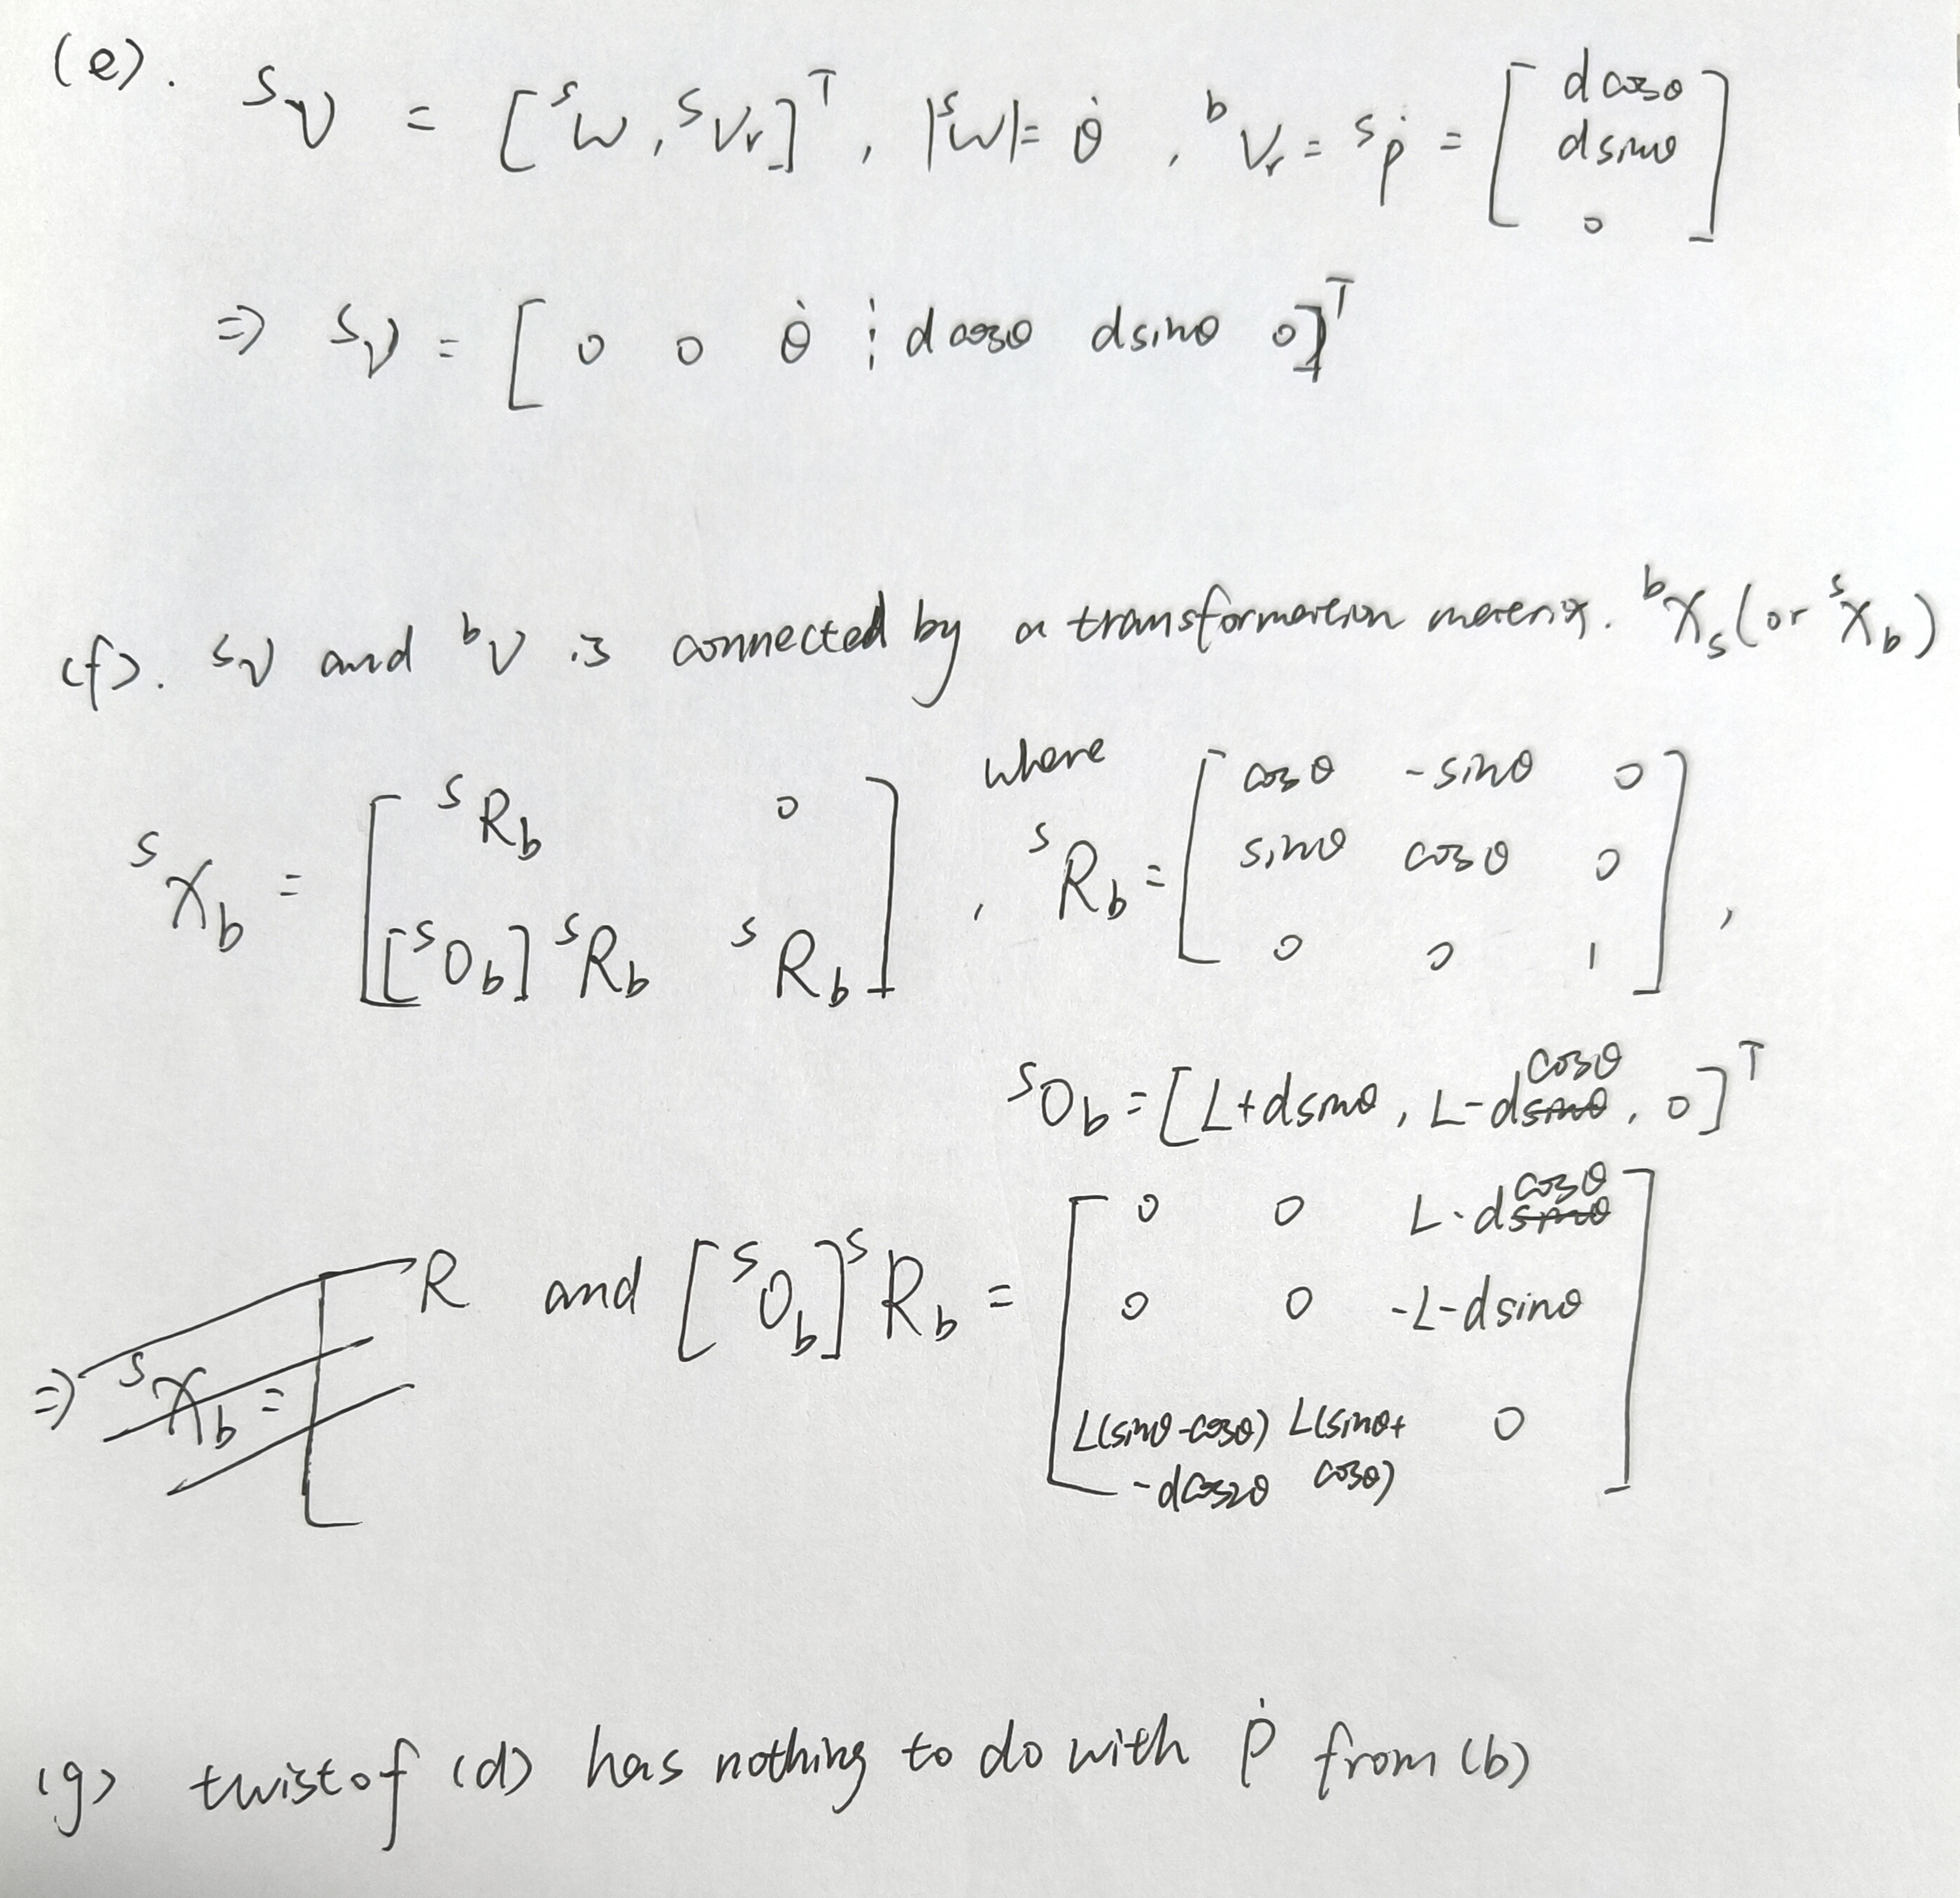 (e). ˢV = [ˢw, ˢVr]ᵀ, |ˢw| = θ̇, ᵇVr = ˢṗ = [ d cosθ
d sinθ
0 ]
⇒ ˢV = [ 0 0 θ̇ ⋮ d cosθ d sinθ 0 ]ᵀ
(f). ˢV and ᵇV is connected by a transformation matrix. ᵇXₛ (or ˢX_b)
ˢX_b = [ ˢR_b 0
[ˢO_b] ˢR_b ˢR_b ] , where
ˢR_b = [ cosθ -sinθ 0
sinθ cosθ 0
0 0 1 ] ,
ˢO_b = [L+dsinθ, L-dcosθ, 0]ᵀ
⇒ ˢX_b = [ R and [ˢO_b] ˢR_b = [ 0 0 L-dcosθ
0 0 -L-dsinθ
L(sinθ-cosθ) L(sinθ+ 0
-dcos2θ cosθ) ]
(g) twist of (d) has nothing to do with ṗ from (b)